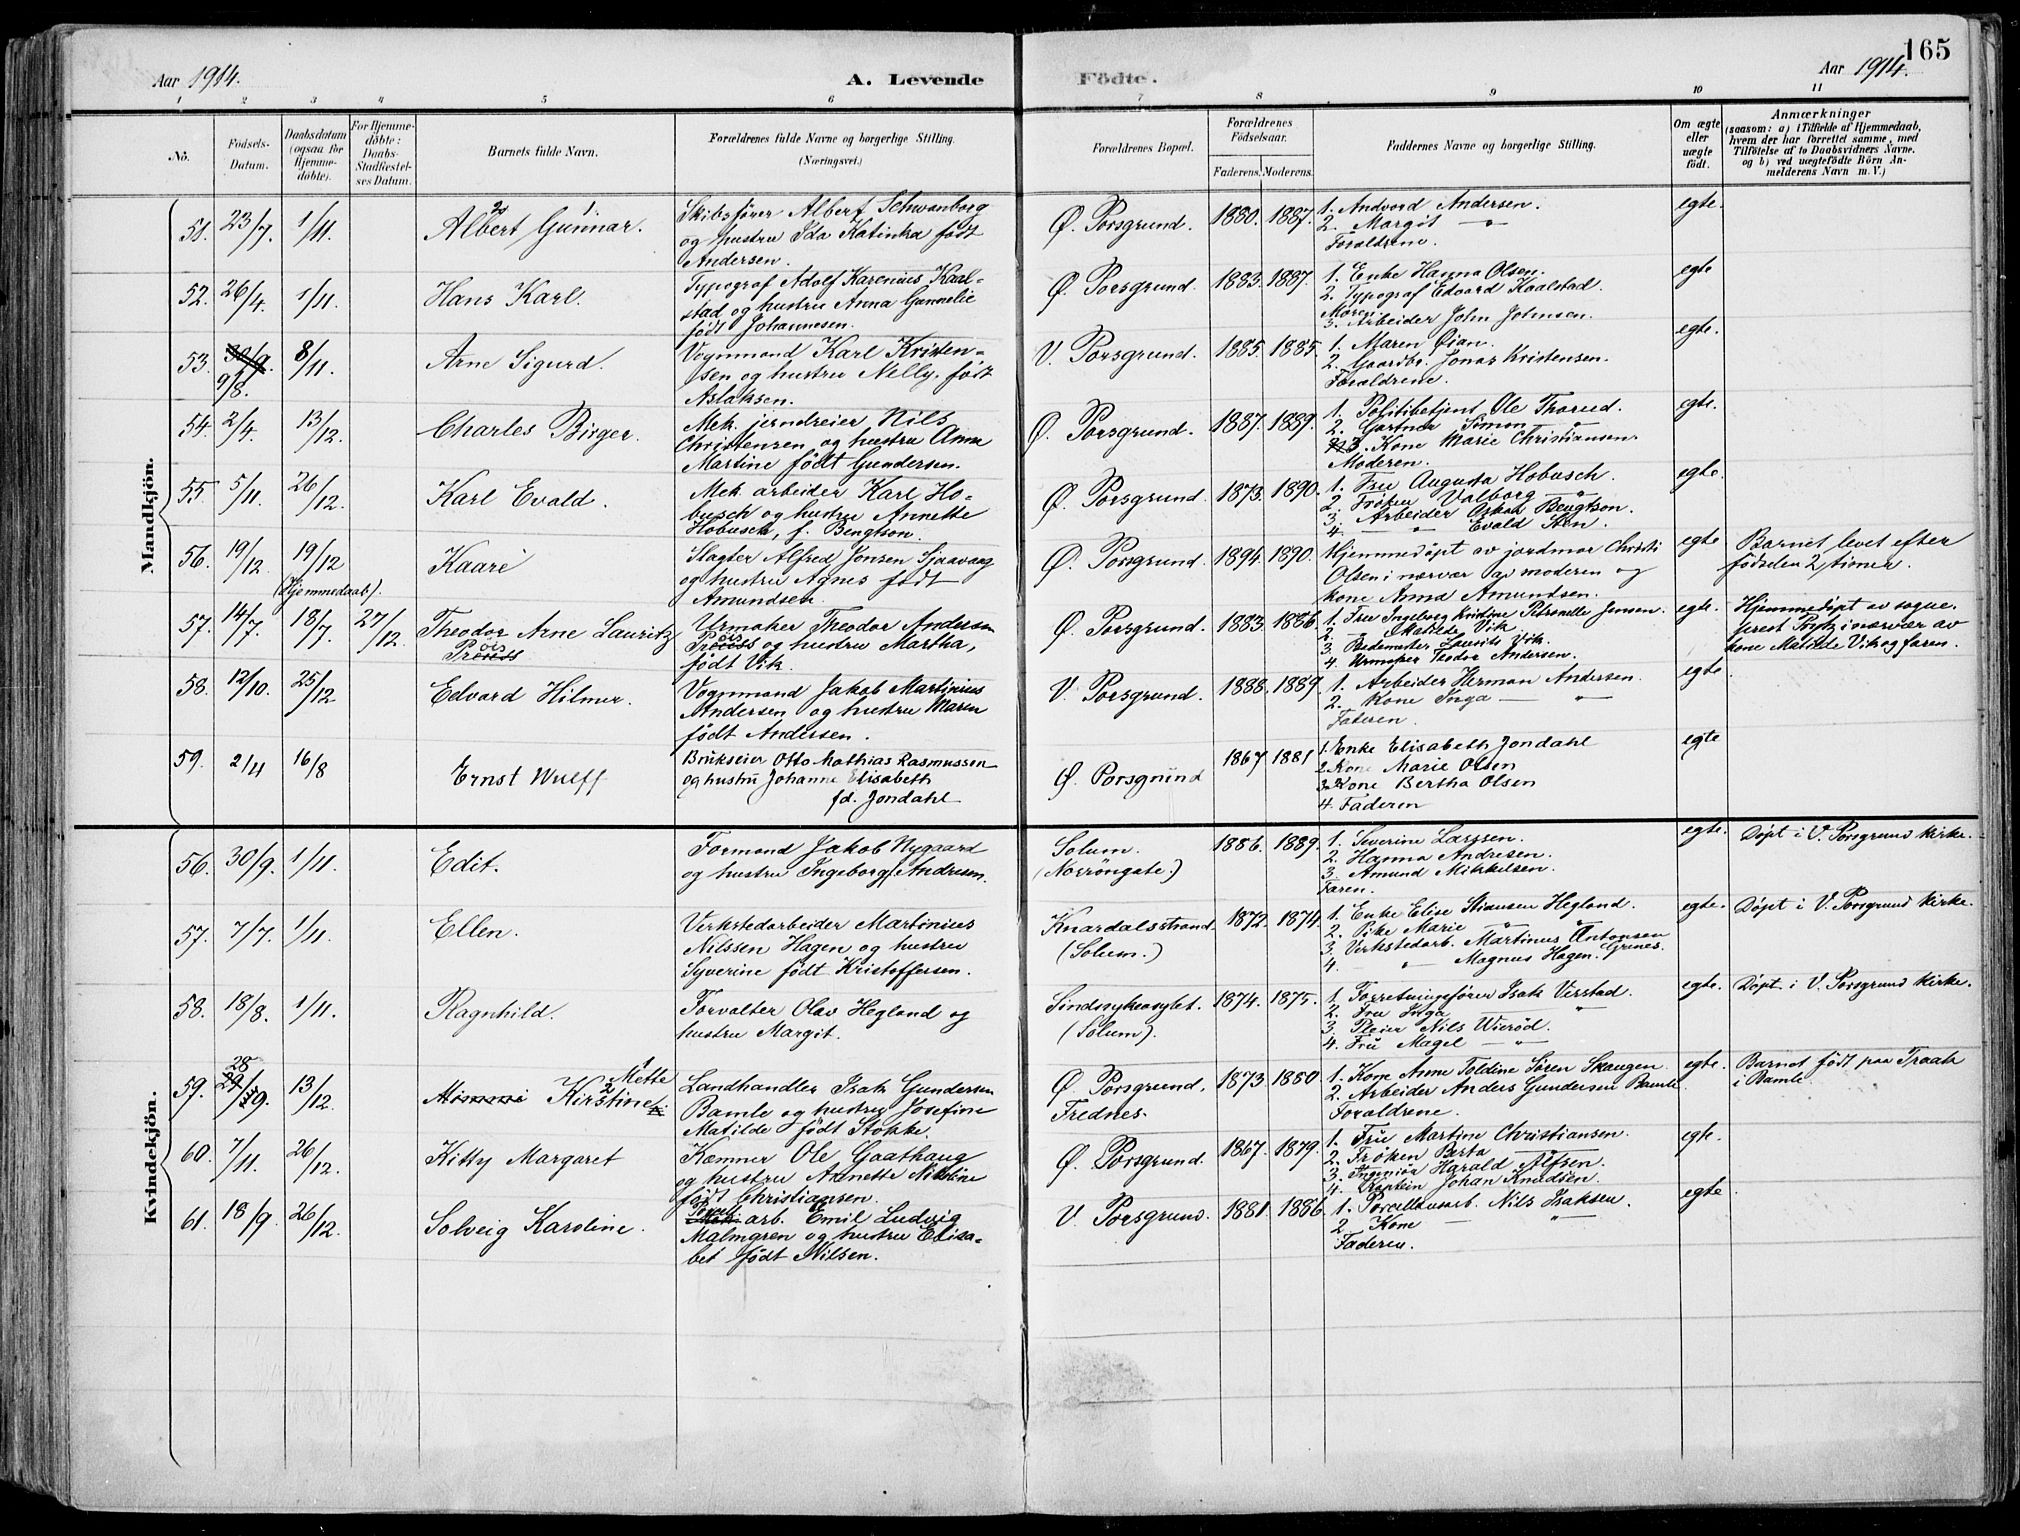 165
Aar 1914.
A. Levende Födte.
Aar 1914.
1 2 3 4 5 6 7 8 9 10 11
No.
Födsels-
Datum.
Daabsdatum
(ogsaa for
Hjemme-
döbte).
For Hjemme-
döbte:
Daabs-
Stadfæstel-
ses Datum.
Barnets fulde Navn.
Forældrenes fulde Navne og borgerlige Stilling.
(Næringsvei.)
Forældrenes Bopæl.
Forældrenes
Födselsaar.
Faderens. Moderens.
Faddernes Navne og borgerlige Stilling.
Om ægte
eller
uægte
födt.
Anmærkninger
(saasom: a) i Tilfælde af Hjemmedaab,
hvem der har forrettet samme, med
Tilföielse af to Daabsvidners Navne,
og b) ved uægtefödte Börn An-
melderens Navn m. V.)
Mandkjön.
51. 23/7. 1/11. Albert Gunnar.
2 1
Skibsfører Albert Schwanborg
og hustru Ida Katinka født
Andersen.
Ø. Porsgrund. 1880. 1887.
1. Andvord Andersen.
2. Margit — " —
Forældrene.
egte.
52. 26/4. 1/11. Hans Karl.
Typograf Adolf Karenius Kaal-
stad og hustru Anna Gunnelie
født Johannesen.
Ø. Porsgrund. 1883. 1887.
1. Enke Hanna Olsen.
2. Typograf Edvard Kaalstad.
Moren.
3. Arbeider John Johnsen.
egte
53. 30/9. 9/8. 8/11. Arne Sigurd.
Vognmand Karl Kristen-
sen og hustru Nelly, født
Aslaksen.
V. Porsgrund. 1885. 1885.
1. Maren Øian.
2. Gaardbr. Jonas Kristensen.
Forældrene.
egte.
54. 2/4. 13/12. Charles Birger.
Mek. jerndreier Nils
Christensen og hustru Anne
Martine født Gundersen.
Ø. Porsgrund. 1887. 1889.
1. Politibetjent Ole Thorud.
2. Gartner Simon "
3. Kone Marie Christiansen.
Moderen.
egte.
55. 5/11. 26/12. Karl Evald.
Mek. arbeider Karl Ho-
busch og hustru Annette
Hobusch, f. Bengtson.
Ø. Porsgrund. 1873. 1890.
1. Fru Augusta Hobusch.
2. Frøken Valborg — " —
3. Arbeider Oskar Bengtson.
4. " Evald Sten.
egte.
56. 19/12. 19/12 (Hjemmedaab). Kaare
Slagter Alfred Jonsen Sjaavaag
og hustru Agnes født
Amundsen.
Ø. Porsgrund. 1894. 1890.
Hjemmedøpt av jordmor Christi
Olsen i nærvær av moderen og
kone Anna Amundsen.
egte
Barnet levet efter
fødselen 2 timer.
57. 14/7. 18/7. 27/12. Theodor Arne Lauritz
Prøis
Urmaker Theodor Andersen
Prøis og hustru Martha,
født Vik.
Ø. Porsgrund. 1883. 1886.
1. Fru Ingeborg Kristine Petronelle Jensen.
2. — Matilde Vik.
3. Redemester Laurits Vik.
4. Urmaker Teodor Andersen.
egte.
Hjemmedøpt av sogne-
prest i nærvær av
kone Matilde Vik og faren.
58. 12/10. 25/12 Edvard Hilmer.
Vognmand Jakob Martinius
Andersen og hustru Maren
født Andersen.
V. Porsgrund. 1888. 1889.
1. Arbeider Herman Andersen.
2. Kone Inga — "
Faderen.
egte.
59. 2/4 16/8 Ernst Wulff
Brukseier Otto Mathias Rasmussen
og hustru Johanne Elisabeth
fd. Jondahl
Ø. Porsgrund 1867 1881
1. Enke Elisabeth Jondahl
2. Kone Marie Olsen
3. Kone Bertha Olsen
4. Faderen
egte
Kvindekjön.
56. 30/9. 1/11. Edit.
Formand Jakob Nygaard
og hustru Ingeborg f. Andresen.
Solum.
(Norrøngate.)
1886. 1889.
1. Severine Larssen.
2. Hanna Andresen.
3. Amund Mikkelsen.
Faren.
egte.
Døpt i V. Porsgrund Kirke.
57. 7/7. 1/11. Ellen.
Verkstedarbeider Martinius
Nilssen Hagen og hustru
Syverine født Kristoffersen.
Knardalsstrand
(Solum.)
1872. 1874.
1. Enke Elise Stiansen Hegland.
2. Pike Marie " "
3. Verkstedarb. Martinus Antonsen Grenes.
4. — " — Magnus Hagen.
egte.
Døpt i V. Porsgrund Kirke.
58. 18/8. 1/11. Ragnhild.
Forvalter Olav Hegland og
hustru Margit.
Sindssykeasylet.
(Solum).
1874. 1875.
1. Forretningsfører Isak Verstad.
2. Fru Inga — " —
3. Pleier Nils Wierød.
4. Fru Magel — " —
egte.
Døpt i V. Porsgrund Kirke.
59. 28/9. 13/12. Kirstine Mette
2 1
Landhandler Isak Gundersen
Bamle og hustru Josefine
Matilde født Stokke.
Ø Porsgrund.
Frednes.
1873. 1880.
1. Kone Anne Toldine Søren Skaugen.
2. Arbeider Anders Gundersen Bamle
Forældrene.
egte.
Barnet født paa Traak
i Bamle.
60. 7/11. 26/12. Kitty Margaret
Kæmner Ole Gaathaug
og hustru Annette Nikoline
født Christiansen.
Ø. Porsgrund. 1867. 1879.
1. Fru Martine Christiansen.
2. Frøken Berta — " —
3. Ingeniør Harald Alfsen.
4. Kaptein Johan Knudsen.
egte.
61. 18/9. 26/12. Solveig Karoline.
arb. Emil Ludvig
Malmgren og hustru Elisa-
bet født Nilsen.
V. Porsgrund. 1881. 1886.
1. Porcellænsarb. Nils Isaksen.
2. Kone — " —
Faderen.
egte